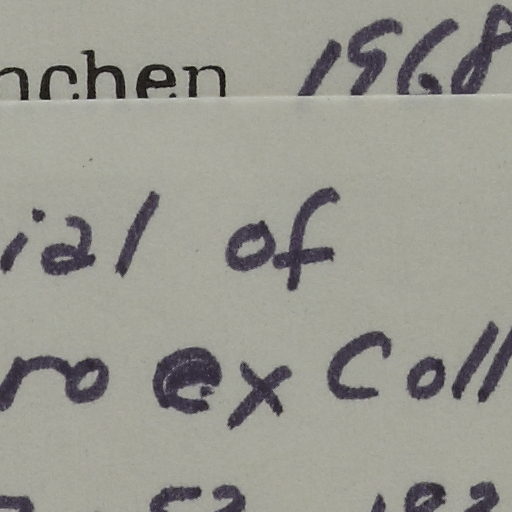 nchen 1968
ial of
ro ex Coll